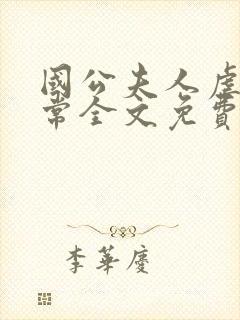 國公夫人虐
常全文免費
李華慶